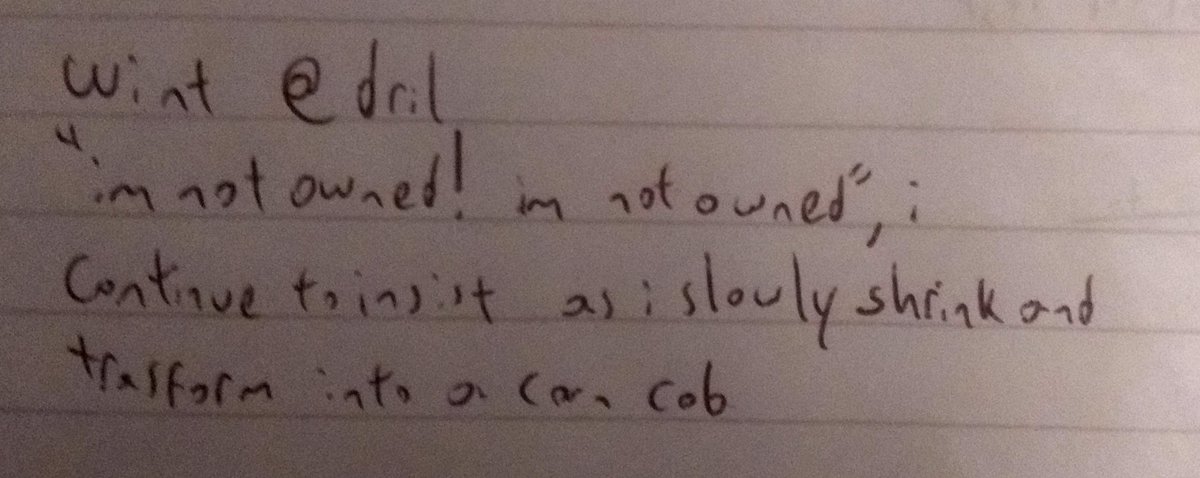 wint @dril
"im not owned! im not owned", i
Continue to insist as i slowly shrink and
trasform into a corn cob